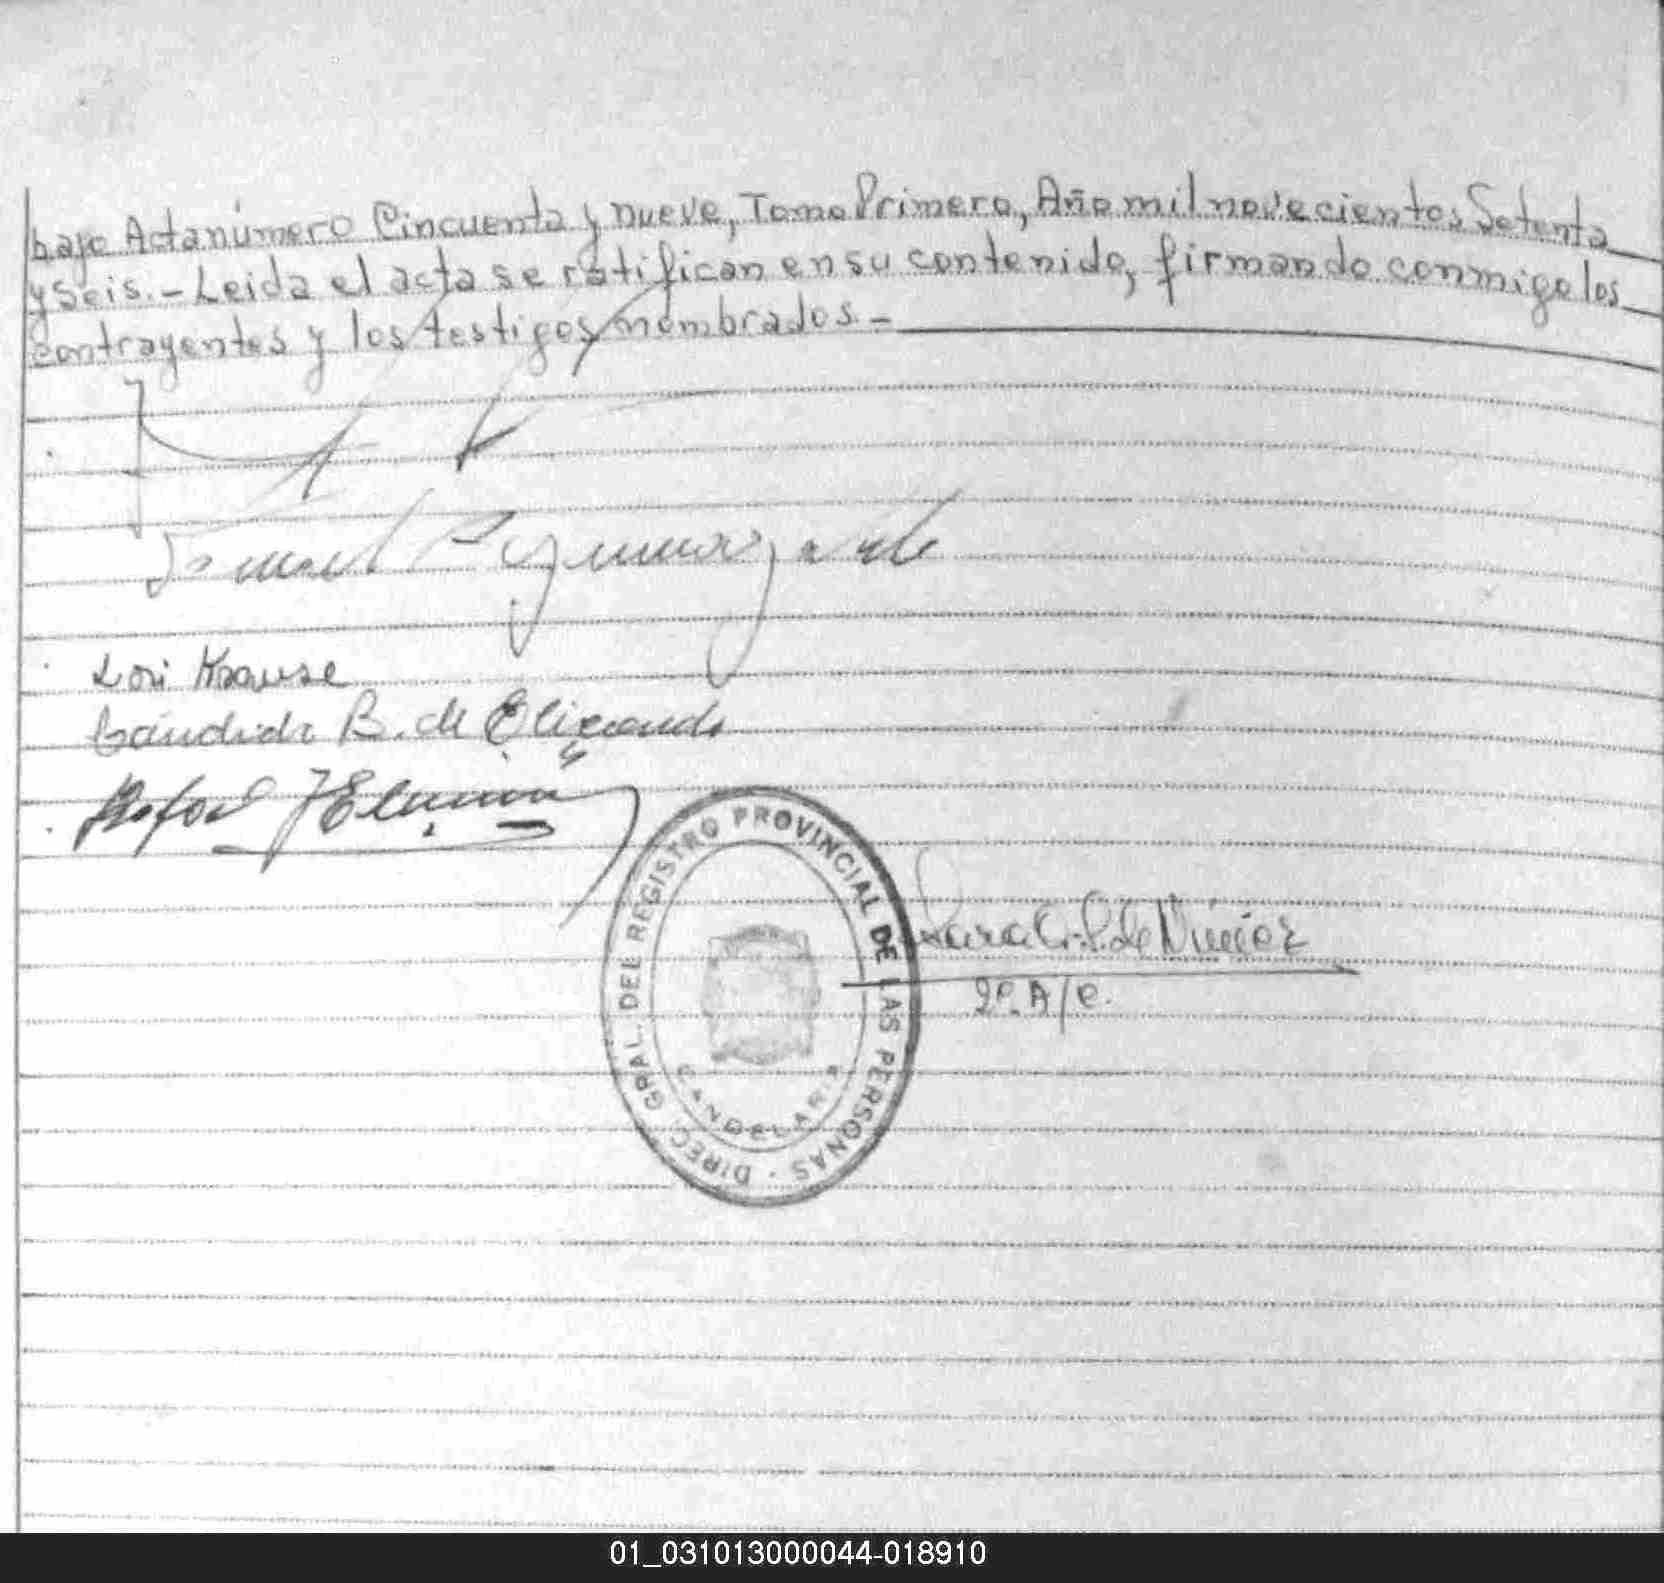 bajo Acta número Cincuenta y nueve, Tomo Primero, Año mil novecientos Setenta
y Seis.- Leida el acta se ratifican en su contenido, firmando conmigo los
contrayentes y los testigos nombrados.-
Lori Krause
Cándida B. de Elizondo
DIRECC. GRAL. DEL REGISTRO PROVINCIAL DE LAS PERSONAS
CANDELARIA
Sara G. P. de
2º A/C.
01_031013000044-018910